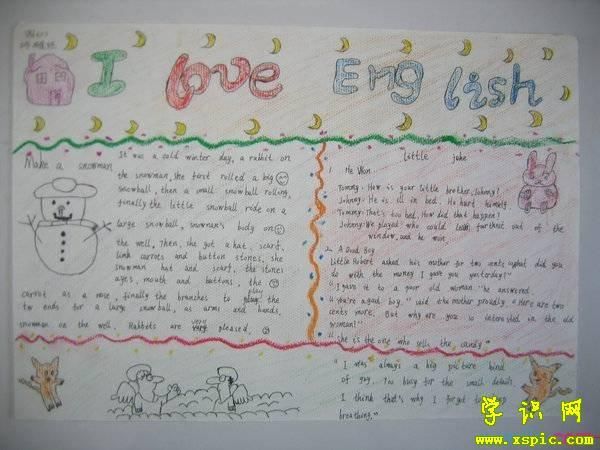 I love English
Make a snowman
It was a cold winter day, a rabbit on
the snowman, she forst rolled a big
snowball, then a small snowball rolling,
finally the little snowball ride on a
large snowball, snowman's body on
the well, Then, she got a hat, scarf,
link carrots and button stones, she
snowman hat and scarf, the stones
ayes, mouth and buttons, the
carrot as a nose, finally the branches to play the
tw ends for a large snowball, as arms and hands,
snowman on the well. Rabbits are very pleased,
little joke
1. He Won
Tommy: How is your little brother, Johnny?
Johnny: He is ill in bed. He hurt himself
Tommy: That's too bad. How did that happen?
Johnny: We played who could lean furthest out of the
window, and he won
2. A Good Boy
Little Robert asked his mother for two cents. "What did you
do with the money I gave you yesterday?"
"I gave it to a poor old woman," he answered
"You're a good boy," said the mother proudly. "Here are two
cents more. But why are you so interested in the old
woman?"
"She is the one who sells the candy."
"I was always a big picture kind
of guy. Too busy for the small details.
I think that's why I forget to keep
breathing."
学识网
www.xspic.com